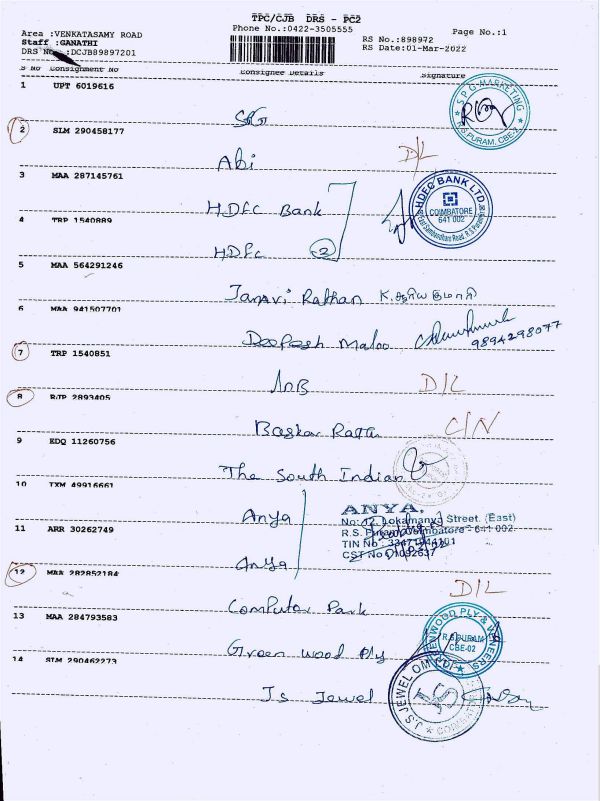 TPC/CJB DRS - PC2
Phone No.:0422-3505555
Area :VENKATASAMY ROAD
Staff :GANATHI
DRS No :DCJB89897201
RS No.:898972
RS Date:01-Mar-2022
Page No.:1
S No Consignment No Consignee Details Signature
1 UPT 6019616
S.P.G MARKETING
R.S.PURAM, CBE-2
2 SLM 290458177
Abi D/L
3 MAA 287145761
HDFC Bank
HDFC BANK LTD.
COIMBATORE
641 002
4 TRP 1540889
HDFC 2
5 MAA 564291246
Janavi Rathan K.
6 MAA 941507701
Deepesh Maloo
9894298077
7 TRP 1540851
D/L
8 RJP 2893405
Baskar C/N
9 EDQ 11260756
The South Indian
10 TXM 49916661
Anya
ANYA.
No: 12, Lokamanya Street. (East)
R.S. Puram, Coimbatore - 641 002
TIN No
CST No
11 ARR 30262749
Anya
12 MAA 282852184
Computer Park D/L
13 MAA 284793583
Green wood Ply
R.S.PURAM
CBE-02
14 SLM 290462273
Js Jewel
J.S JEWEL